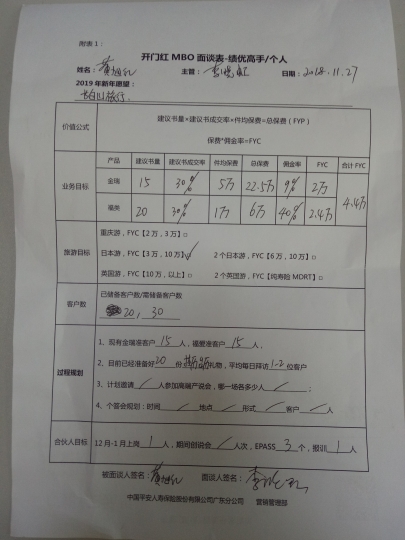 附表 1：
开门红 MBO 面谈表-绩优高手/个人
姓名： 主管： 日期：2018.11.27
2019 年新年愿望：
长白山旅行.
价值公式 建议书量×建议书成交率×件均保费=总保费（FYP）
保费*佣金率=FYC
业务目标 产品 建议书量 建议书成交率 件均保费 总保费 佣金率 FYC 合计 FYC
金瑞 15 30% 5万 22.5万 9% 2万 4.4万
福类 20 30% 1万 6万 40% 2.4万
旅游目标 重庆游，FYC【2 万，3 万】□
日本游，FYC【3 万，10 万】□√ 2 个日本游，FYC【6 万，10 万】□
英国游，FYC【10 万，以上】□ 2 个英国游，FYC【纯寿险 MDRT】□
客户数 已储备客户数/需储备客户数
20，30
过程规划 1、现有金瑞准客户 15 人，福塑准客户 15 人，
2、目前已经准备好 20 份 礼物，平均每日拜访 1-2 位客户
3、计划邀请 / 人参加高端产说会，哪一场各多少人 / ；
4、个答会规划：时间 / 地点 / 形式 / 客户 / 人
合伙人目标 12 月-1 月上岗 1 人，期间创说会 / 人次，EPASS 3 个，报训 1 人
被面谈人签名： 面谈人签名：
中国平安人寿保险股份有限公司广东分公司 营销管理部